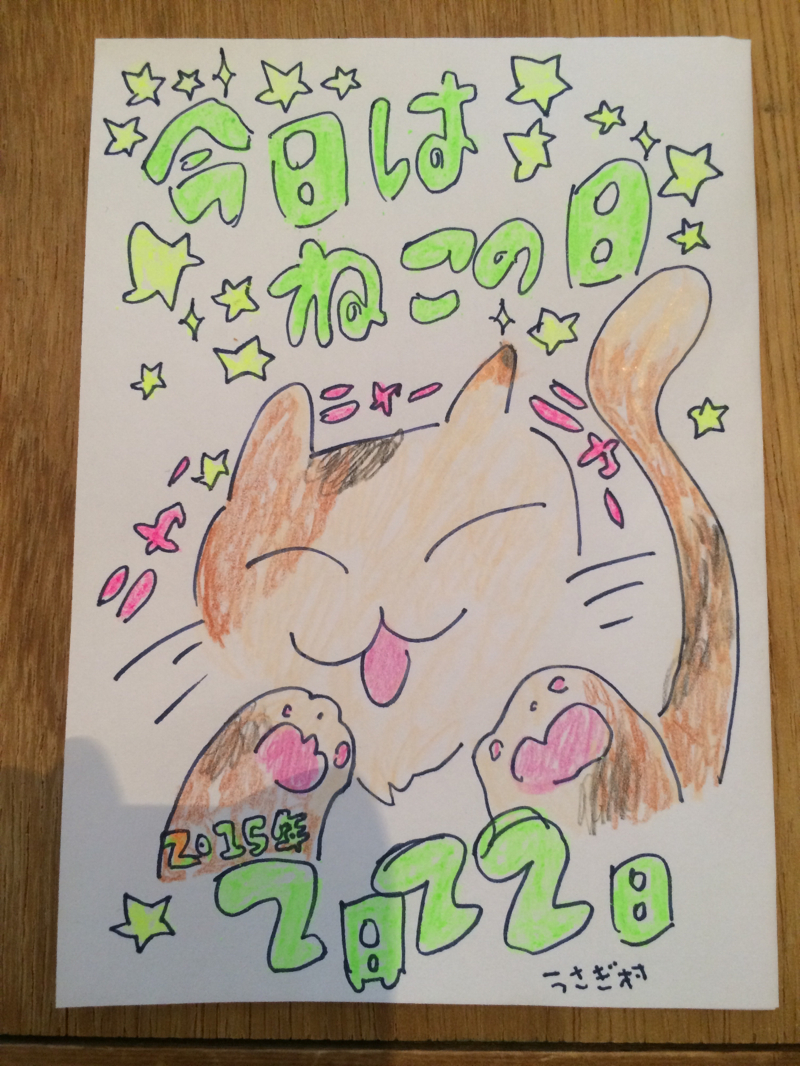 今日は
ねこの日
ニャー
ニャー
ニャー
2015年
2月22日
うさぎ村